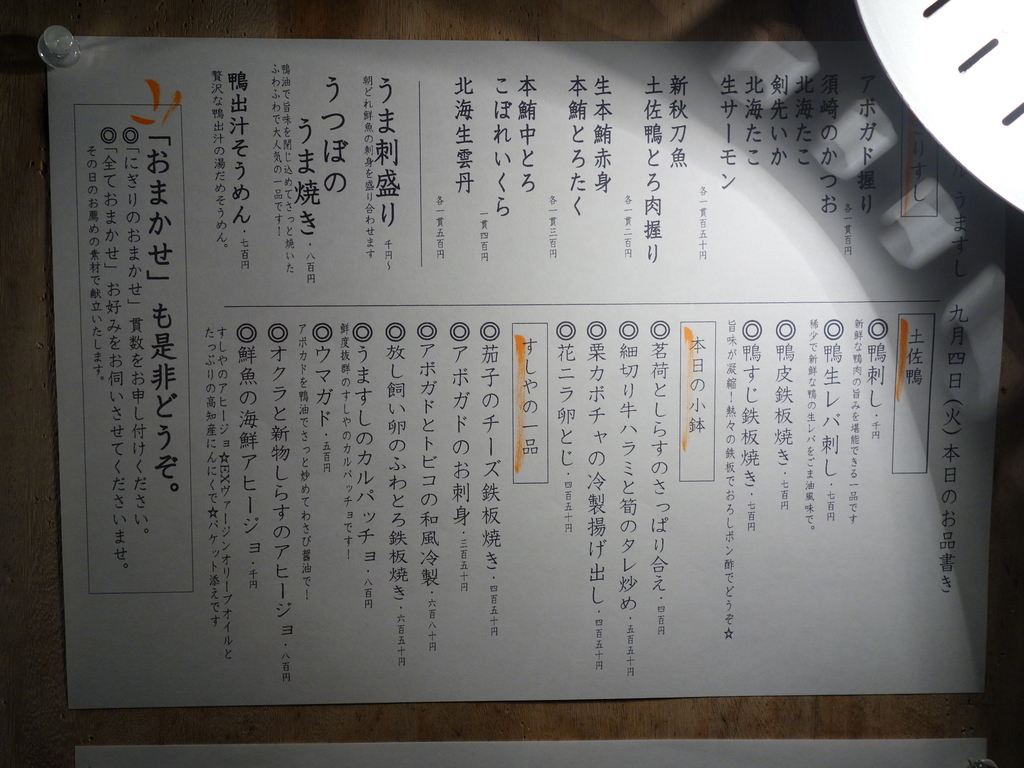 うますし 九月四日（火）本日のお品書き
アボガド握り
須崎のかつお
各一貫百円
北海たこ
剣先いか
北海たこ
生サーモン
各一貫百五十円
新秋刀魚
土佐鴨とろ肉握り
各一貫二百円
生本鮪赤身
本鮪とろたく
各一貫三百円
本鮪中とろ
こぼれいくら
一貫四百円
北海生雲丹
各一貫五百円
うま刺盛り 千円〜
朝どれ鮮魚の刺身を盛り合わせます
うつぼの
うま焼き・八百円
鴨油で旨味を閉じ込めてさっと焼いた
ふわふわで大人気の一品です！
鴨出汁そうめん・七百円
贅沢な鴨出汁の湯だめそうめん。
土佐鴨
◎鴨刺し・千円
新鮮な鴨肉の旨みを堪能できる一品です
◎鴨生レバ刺し・七百円
稀少で新鮮な鴨の生レバをごま油風味で。
◎鴨皮鉄板焼き・七百円
◎鴨すじ鉄板焼き・七百円
旨味が凝縮！熱々の鉄板でおろしポン酢でどうぞ☆
本日の小鉢
◎茗荷としらすのさっぱり合え・四百円
◎細切り牛ハラミと筍のタレ炒め・五百五十円
◎栗カボチャの冷製揚げ出し・四百五十円
◎花ニラ卵とじ・四百五十円
すしやの一品
◎茄子のチーズ鉄板焼き・四百五十円
◎アボガドのお刺身・三百五十円
◎アボガドとトビコの和風冷製・六百八十円
◎放し飼い卵のふわとろ鉄板焼き・六百五十円
◎うますしのカルパッチョ・八百円
鮮度抜群のすしやのカルパッチョです！
◎ウマガド・五百円
アボカドを鴨油でさっと炒めてわさび醤油で！
◎オクラと新物しらすのアヒージョ・八百円
◎鮮魚の海鮮アヒージョ・千円
すしやのアヒージョ☆EXヴァージンオリーブオイルと
たっぷりの高知産にんにくで☆バケット添えです
「おまかせ」も是非どうぞ。
◎「にぎりのおまかせ」貫数をお申し付けください。
◎「全ておまかせ」お好みをお伺いさせてくださいませ。
その日のお薦めの素材で献立いたします。